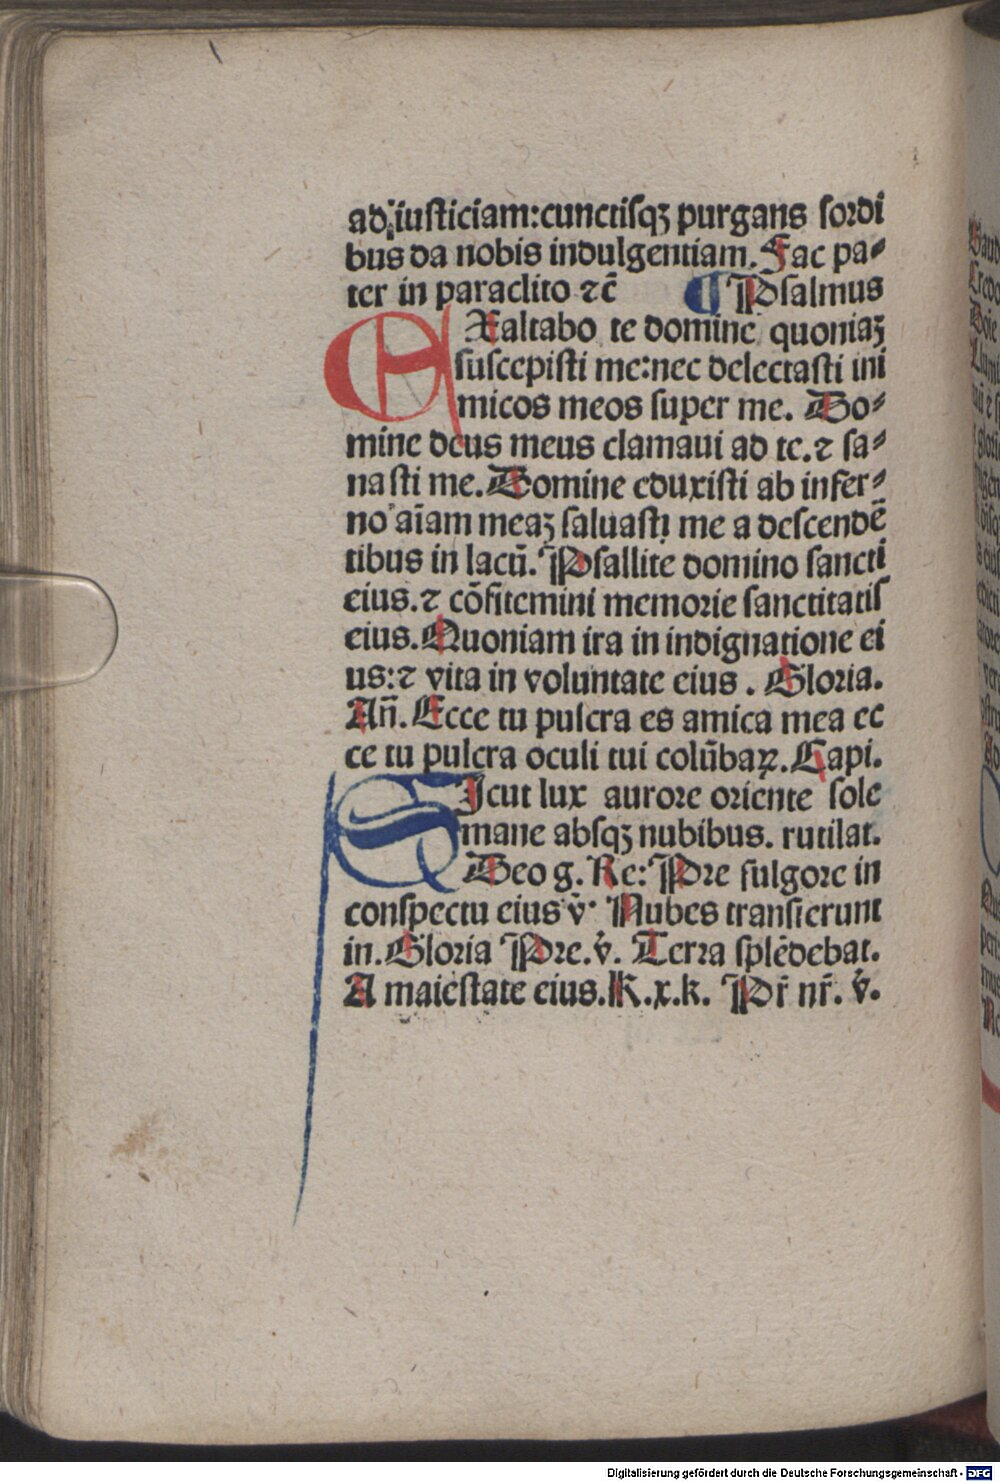 ad iusticiam:cunctisqꝫ purgans sordi
bus da nobis indulgentiam. Fac pa⸗
ter in paraclito ⁊c̄ ¶ Psalmus
EXaltabo te domine quoniaꝫ
suscepisti me:nec delectasti ini
micos meos super me. Do⸗
mine deus meus clamaui ad te.⁊ sa⸗
nasti me. Domine eduxisti ab infer⸗
no aīam meaꝫ saluasti me a descendē
tibus in lacū. Psallite domino sancti
eius.⁊ cōfitemini memorie sanctitatis
eius. Quoniam ira in indignatione ei
us:⁊ vita in voluntate eius . Gloria.
An̄. Ecce tu pulcra es amica mea ec
ce tu pulcra oculi tui colūbaꝝ. Capi.
SIcut lux aurore oriente sole
mane absqꝫ nubibus. rutilat.
Deo g. Re: Pre fulgore in
conspectu eius v̇ Nubes transierunt
in. Gloria Pre. v̇. Terra splēdebat.
A maiestate eius. K.x.k. Pr̄ nr̄. v̇.
Digitalisierung gefördert durch die Deutsche Forschungsgemeinschaft - DFG